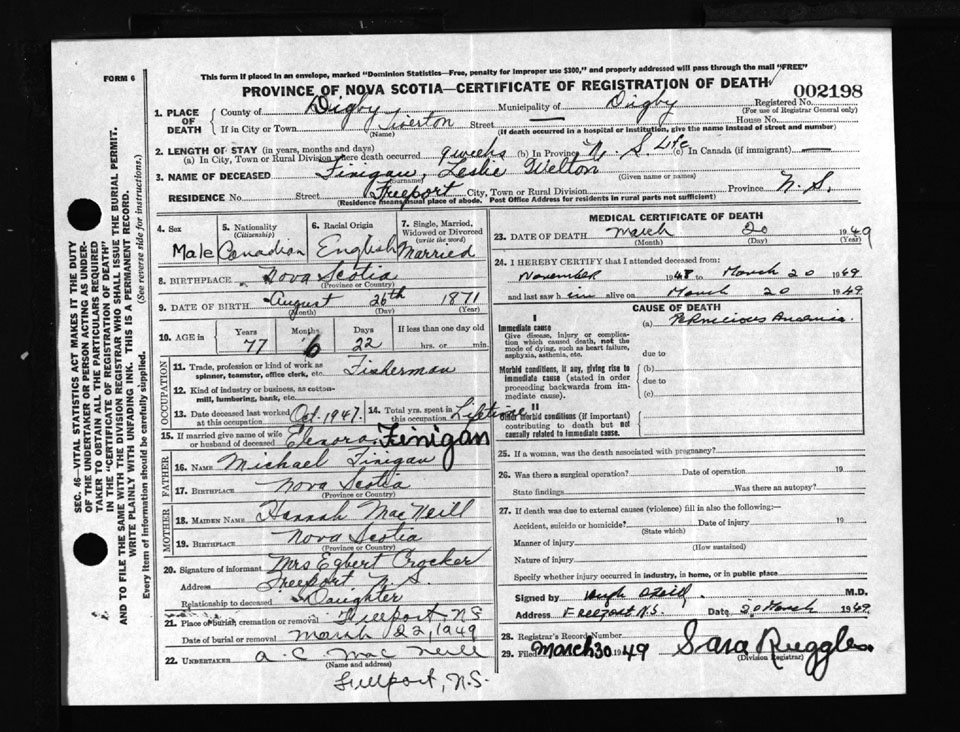 FORM 6
This form if placed in an envelope, marked "Dominion Statistics—Free, penalty for improper use $300," and properly addressed will pass through the mail "FREE"
PROVINCE OF NOVA SCOTIA—CERTIFICATE OF REGISTRATION OF DEATH
002198
SEC. 46—VITAL STATISTICS ACT MAKES IT THE DUTY
OF THE UNDERTAKER OR PERSON ACTING AS UNDER-
TAKER TO OBTAIN ALL THE PARTICULARS REQUIRED
IN THE "CERTIFICATE OF REGISTRATION OF DEATH"
AND TO FILE THE SAME WITH THE DIVISION REGISTRAR WHO SHALL ISSUE THE BURIAL PERMIT.
WRITE PLAINLY WITH UNFADING INK. THIS IS A PERMANENT RECORD.
Every item of information should be carefully supplied. (See reverse side for instructions.)
1. PLACE OF DEATH
County of Digby Municipality of Digby Registered No.
(For use of Registrar General only)
If in City or Town Tiverton Street — House No.
(Name) (If death occurred in a hospital or institution, give the name instead of street and number)
2. LENGTH OF STAY (in years, months and days)
(a) In City, Town or Rural Division where death occurred 9 weeks (b) In Province N. S. Life (c) In Canada (if immigrant) —
3. NAME OF DECEASED Finigan, Leslie Welton
(Surname) (Given name or names)
RESIDENCE No. Street Freeport City, Town or Rural Division Province N. S.
(Residence means usual place of abode. Post Office Address for residents in rural parts not sufficient)
4. Sex
Male
5. Nationality
(Citizenship)
Canadian
6. Racial Origin
English
7. Single, Married,
Widowed or Divorced
(write the word)
Married
8. BIRTHPLACE Nova Scotia
(Province or Country)
9. DATE OF BIRTH August 26th 1871
(Month) (Day) (Year)
10. AGE in
Years Months Days If less than one day old
77 6 22 hrs. or min.
OCCUPATION
11. Trade, profession or kind of work as
spinner, teamster, office clerk, etc. Fisherman
12. Kind of industry or business, as cotton-
mill, lumbering, bank, etc.
13. Date deceased last worked
at this occupation Oct. 1947.
14. Total yrs. spent in
this occupation Lifetime
15. If married give name of wife
or husband of deceased Elenora Finigan
FATHER
16. NAME Michael Finigan
17. BIRTHPLACE Nova Scotia
(Province or Country)
MOTHER
18. MAIDEN NAME Hannah MacNeill
19. BIRTHPLACE Nova Scotia
(Province or Country)
20. Signature of informant Mrs Egbert Crocker
Address Freeport N. S.
Relationship to deceased Daughter
21. Place of burial, cremation or removal Freeport, N.S
Date of burial or removal March 22, 1949
22. UNDERTAKER A. C. MacNeill
(Name and address)
Freeport, N.S.
MEDICAL CERTIFICATE OF DEATH
23. DATE OF DEATH March 20 1949
(Month) (Day) (Year)
24. I HEREBY CERTIFY that I attended deceased from:
November 1948 to March 20 1949
and last saw him alive on March 20 1949
CAUSE OF DEATH
I
Immediate cause
Give disease, injury or complica-
tion which caused death, not the
mode of dying, such as heart failure,
asphyxia, asthenia, etc.
(a) Pernicious Anaemia.
due to
Morbid conditions, if any, giving rise to
immediate cause (stated in order
proceeding backwards from im-
mediate cause).
(b)
due to
(c)
II
Other morbid conditions (if important)
contributing to death but not
causally related to immediate cause.
25. If a woman, was the death associated with pregnancy?
26. Was there a surgical operation? Date of operation 19
State findings Was there an autopsy?
27. If death was due to external causes (violence) fill in also the following:—
Accident, suicide or homicide? Date of injury 19
(State which)
Manner of injury
(How sustained)
Nature of injury
Specify whether injury occurred in industry, in home, or in public place
Signed by M.D.
Address Freeport N.S. Date 20 March 1949
28. Registrar's Record Number
29. Filed March 30 1949 Sara Ruggles
(Division Registrar)